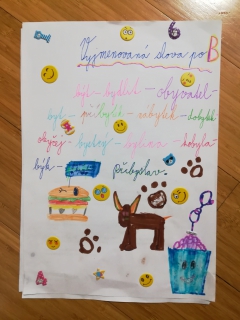 Vyjmenovaná slova po B
být - bydlet - obyvatel -
byt - příbytek - nábytek - dobytek
obyčej - bystrý - bylina - kobyla
býk - Přibyslav.